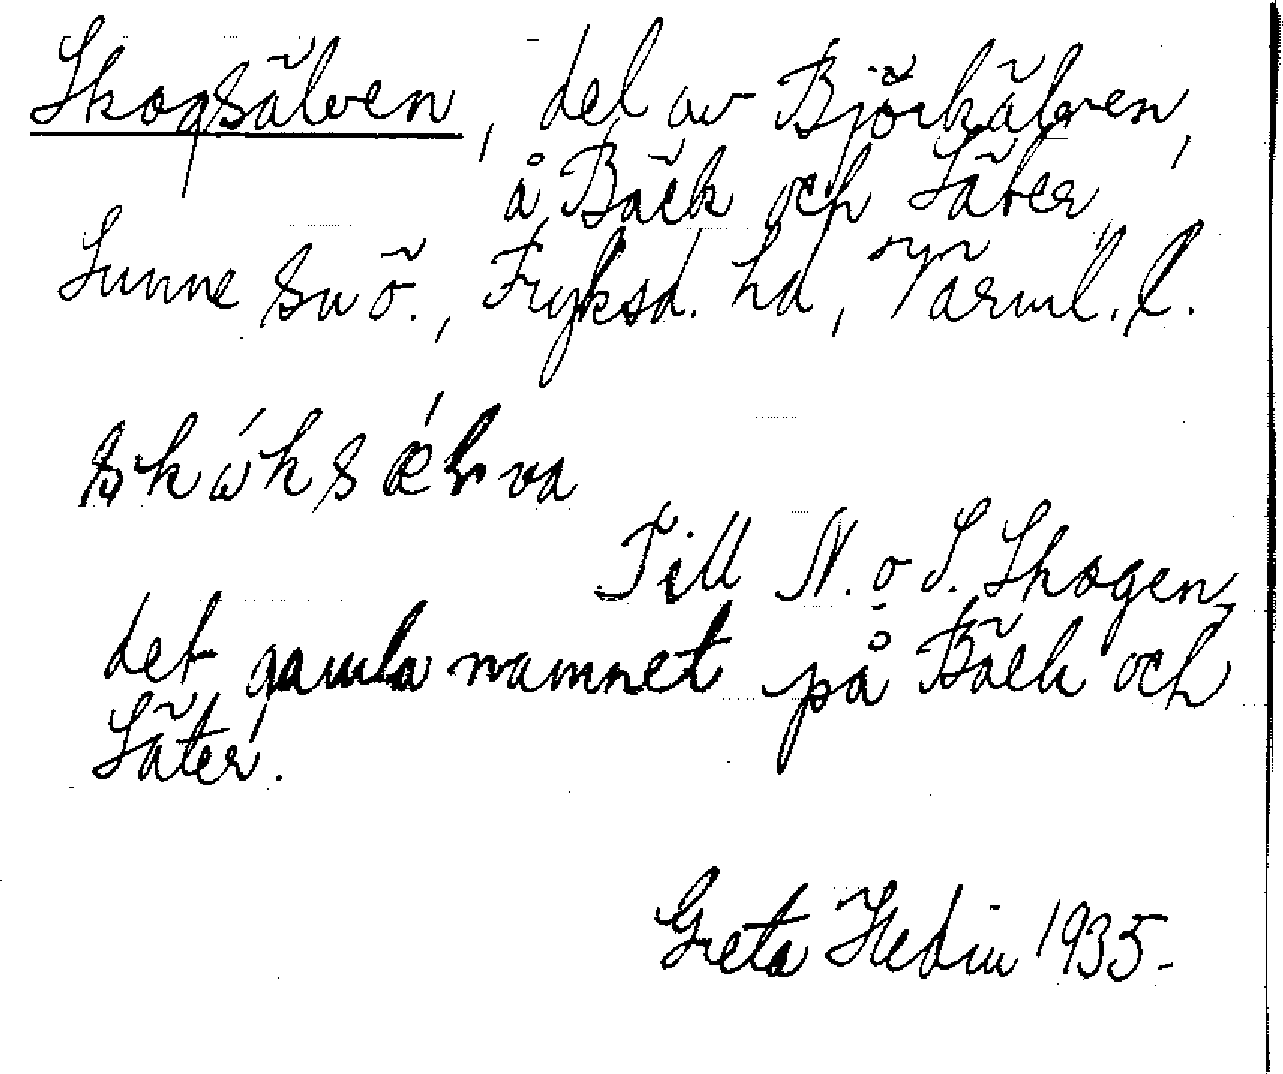 Skogsälven, del av Björkälven,
å Bäck och Säter,
Sunne sn ö., Fryksd. hd, Värml. l.
Till N. o S. Skogen,
det gamla namnet på Bäck och
Säter.
Greta Hedin 1935.